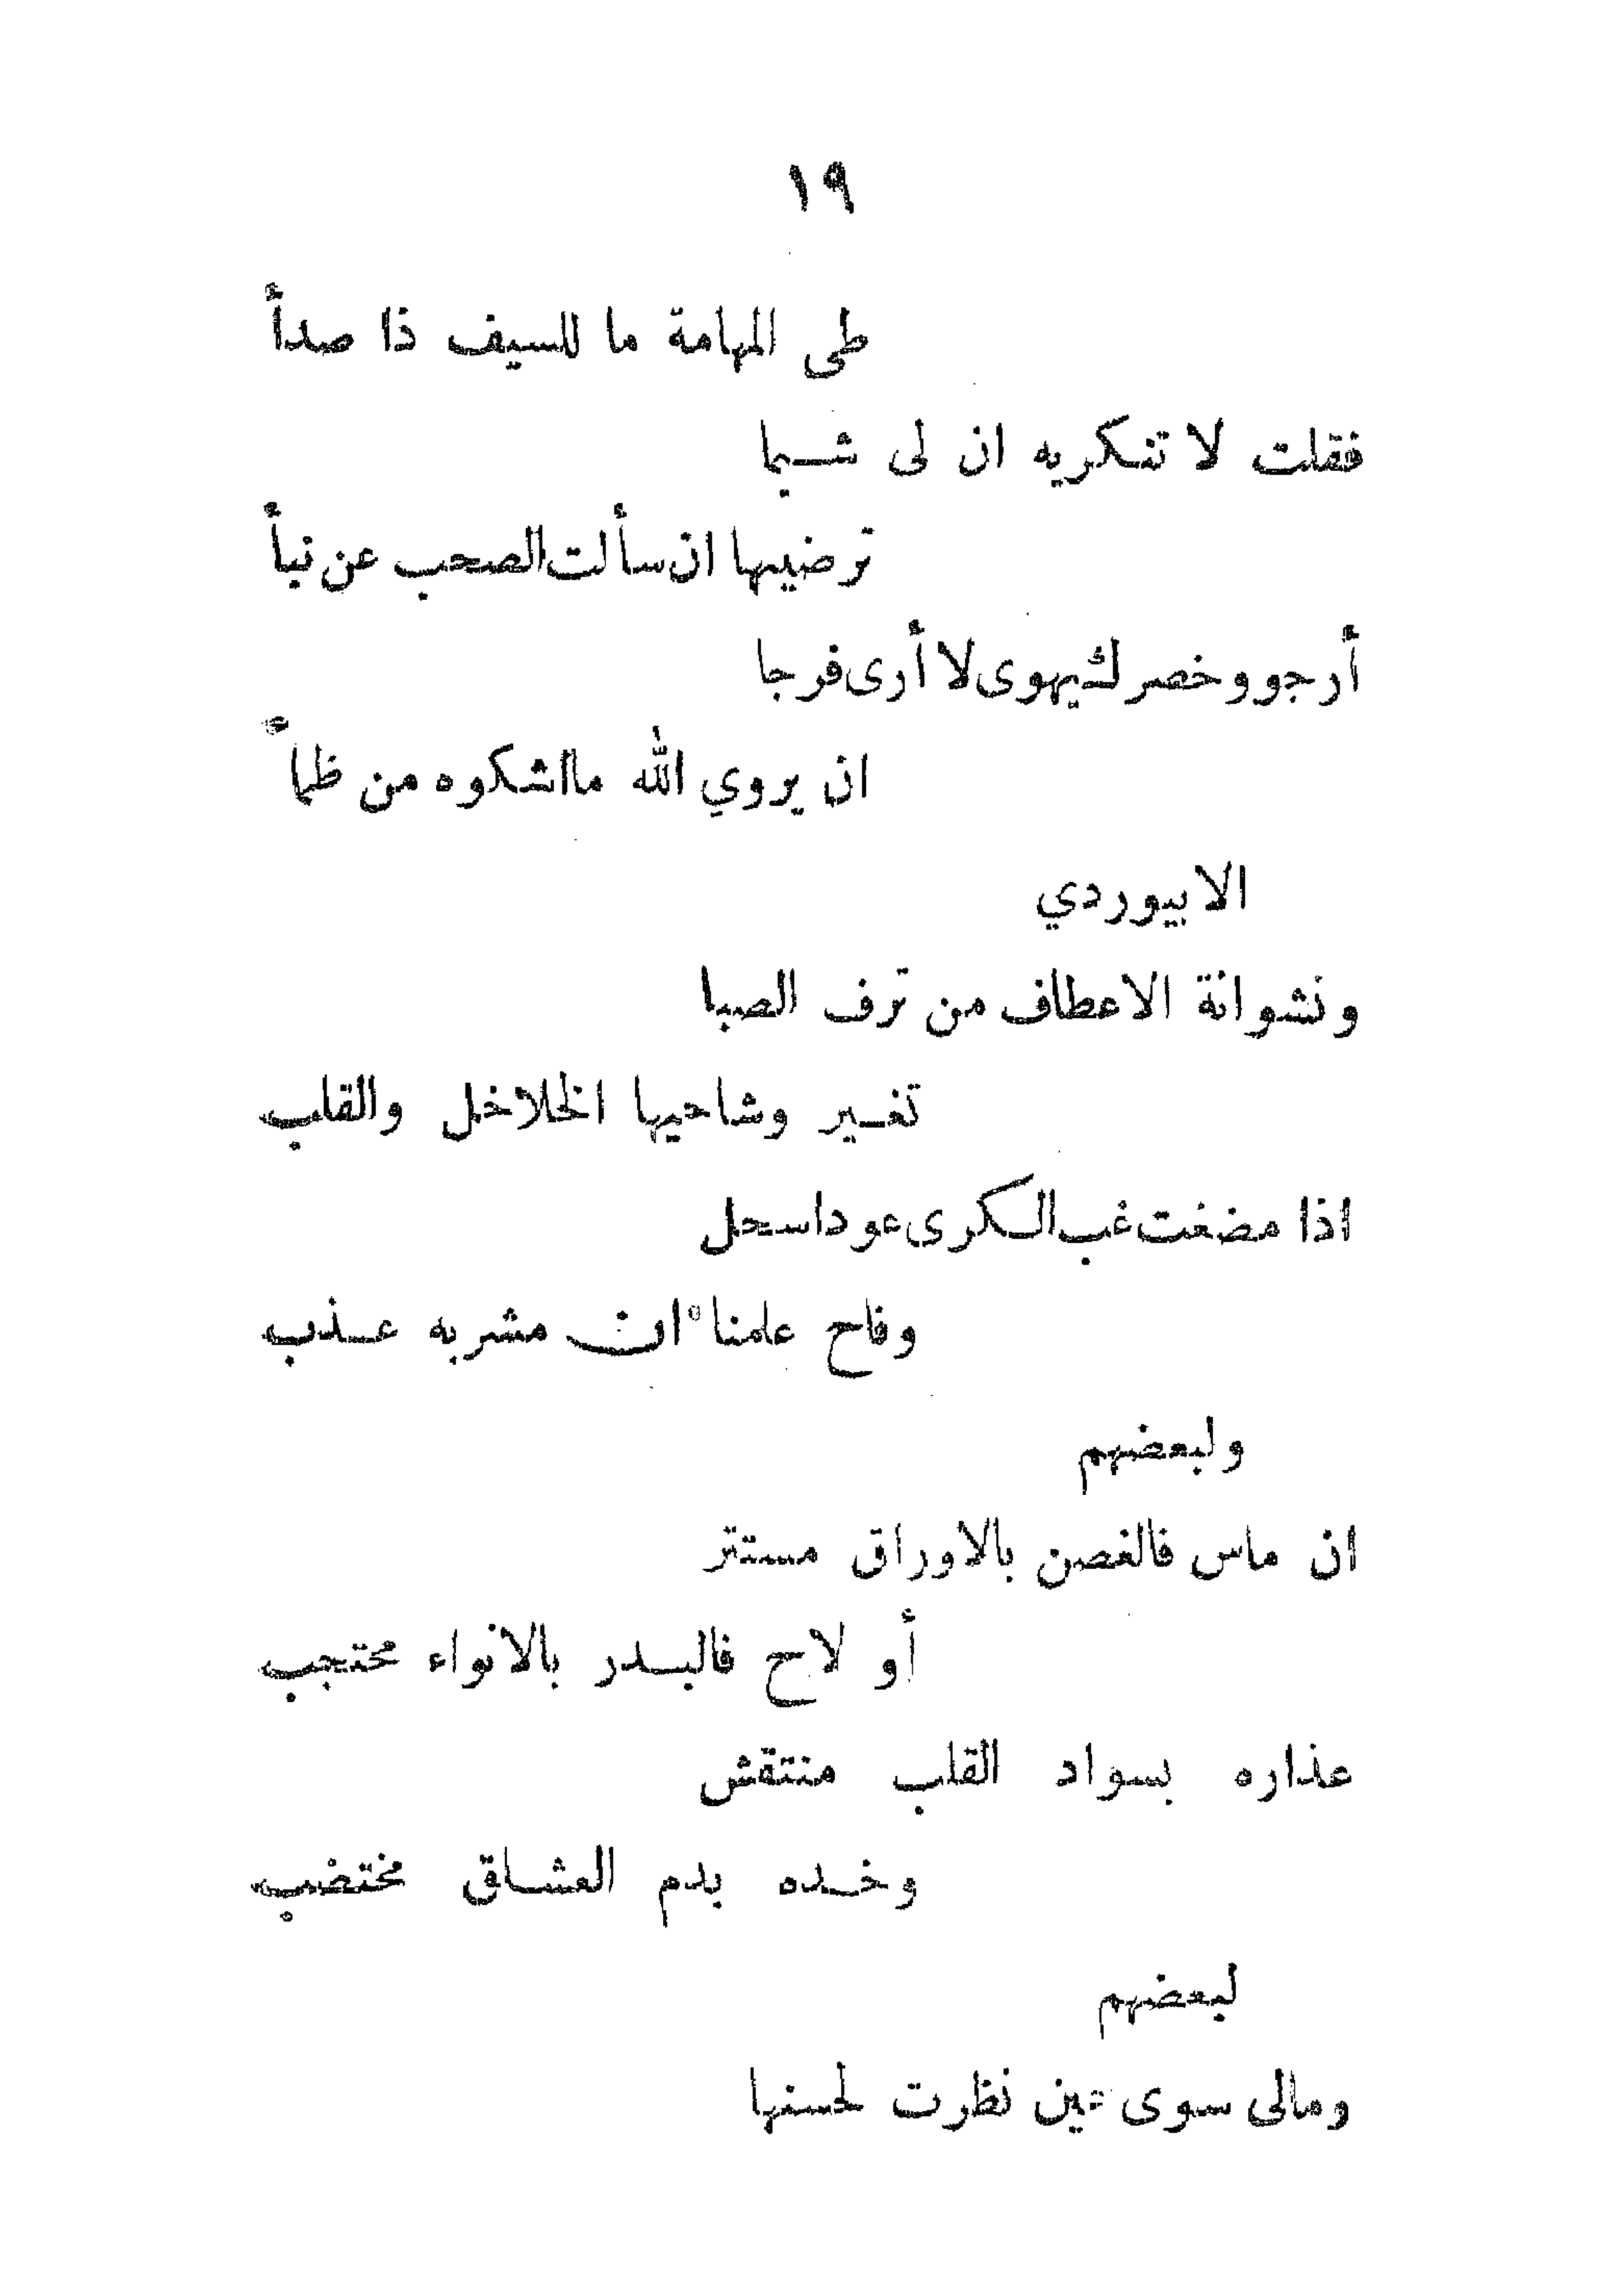 ١٩
طى المهامة ما للسيف ذا صدأ
فقلت لا تنكريه ان لى شيما
ترضيها ان سألت الصحب عن نبأ
أرجو وخصرك يهوى لا أرى فرجا
ان يروي الله ما اشكوه من ظمأ
الابيوردي
ونشوانة الاعطاف من ترف الصبا
تغير وشاحيها الخلاخل والقلب
اذا مضغت غب الكرى عود اسحل
وفاح علمنا ان مشربه عذب
ولبعضهم
ان ماس فالغصن بالاوراق مستتر
أو لاح فالبدر بالانواء محتجب
عذاره بسواد القلب منتقش
وخده بدم العشاق مختضب
لبعضهم
ومالى سوى عين نظرت لحسنها